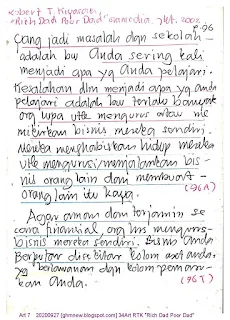 Robert T. Kiyosaki
"Rich Dad Poor Dad" Gramedia, Jkt. 2002
p.96
Yang jadi masalah dgn sekolah
adalah bw Anda sering kali
menjadi apa yg Anda pelajari.
Kesalahan dlm menjadi apa yg anda
pelajari adalah bw terlalu banyak
org lupa utk mengurus atau me
mikirkan bisnis mereka sendiri.
Mereka menghabiskan hidup mereka
utk mengurusi/menjalankan bis-
nis orang lain dan membuat
orang lain itu kaya.
(96A)
Agar aman dan terjamin se
cara financial, org hrs mengurus
bisnis mereka sendiri. Bisnis Anda
berputar di sekitar kolom aset anda,
yg berlawanan dgn kolom pema
kan Anda.
(96T)
Art 7 20200927 [jghmnew.blogspot.com] 34Art RTK "Rich Dad Poor Dad"